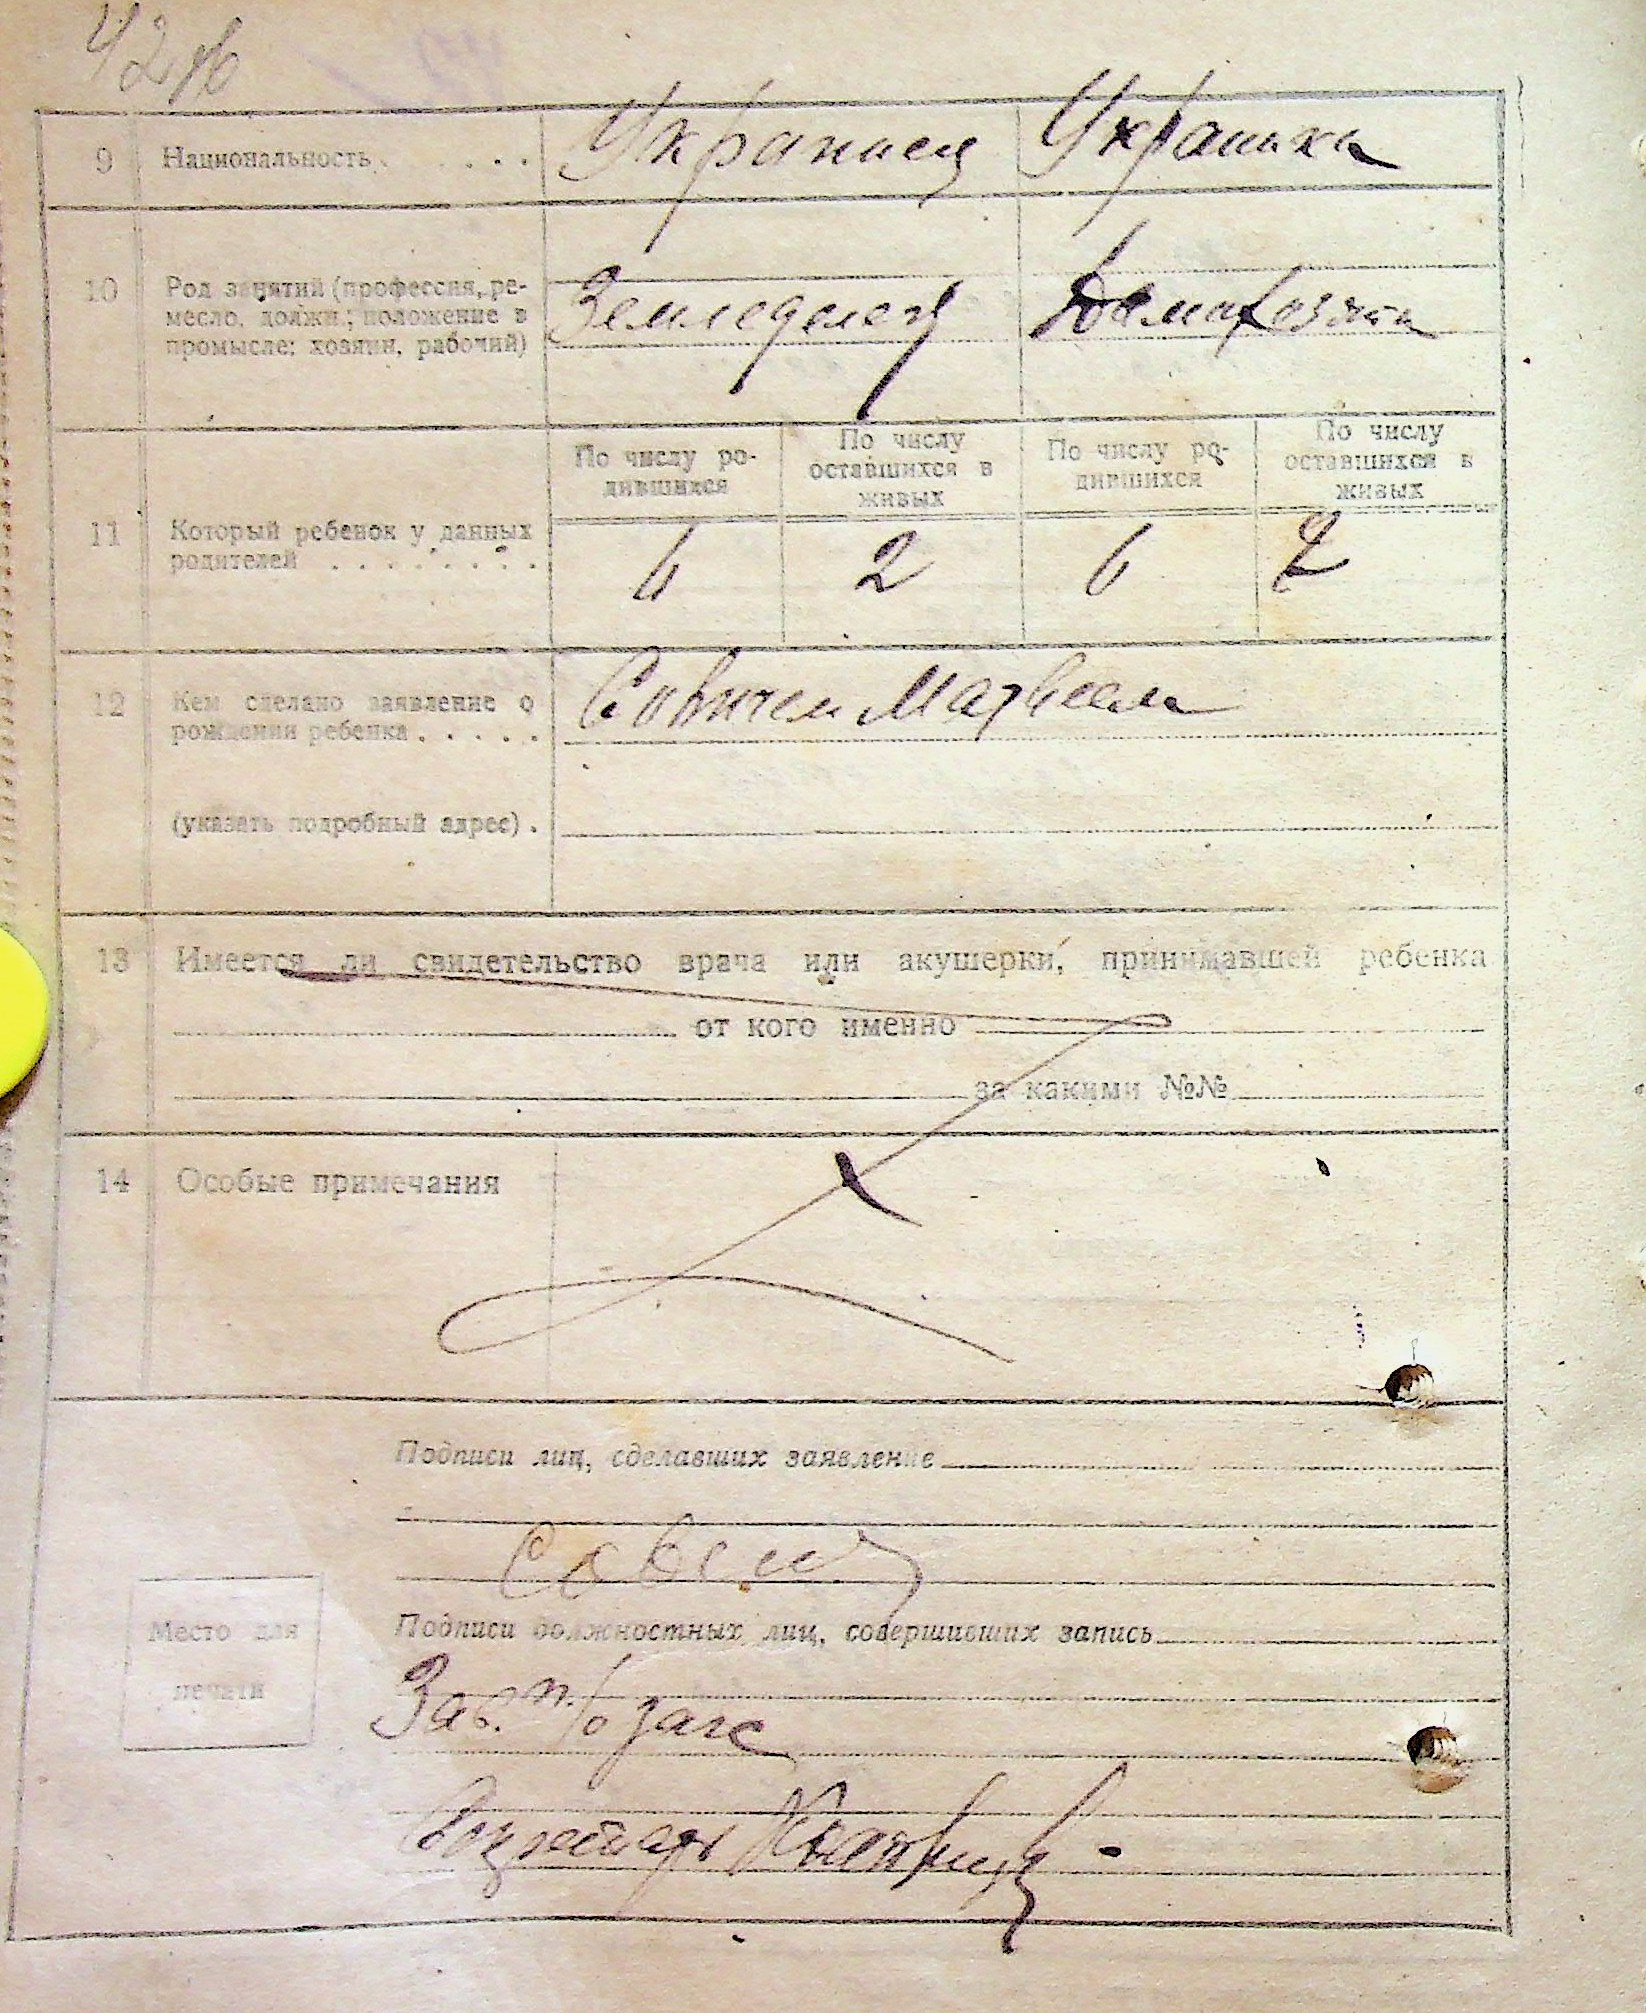 42
9 Национальность . . . . . Украинец Украинка
10 Род занятий (профессия, ре-
месло, должн.; положение в
промысле: хозяин, рабочий)
Земледелец Домохозяйка
11 Который ребенок у данных
родителей . . . . . . . .
По числу ро-
дившихся
По числу
оставшихся в
живых
По числу ро-
дившихся
По числу
оставшихся в
живых
6 2 6 2
12 Кем сделано заявление о
рождении ребенка . . . . .
Матвеем
(указать подробный адрес) .
13 Имеется ли свидетельство врача или акушерки, принимавшей ребенка
от кого именно
за какими №№
14 Особые примечания
Подписи лиц, сделавших заявление
Подписи должностных лиц, совершивших запись
Место для
печати
Зав. п/б загс
Секретарь